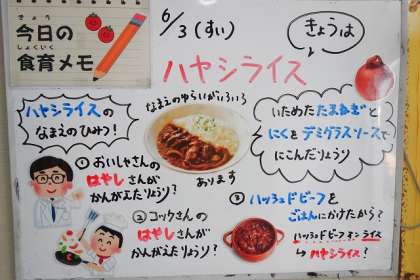 きょう
今日の
しょくいく
食育メモ
6/3(すい)
きょうは
ハヤシライス
ハヤシライスの
なまえのひみつ!
なまえのゆらいがいろいろ
あります
いためた たまねぎと
にくとデミグラスソースで
にこんだりょうり
① おいしゃさんの
はやしさんが
かんがえたりょうり?
② コックさんの
はやしさんが
かんがえたりょうり?
③ ハッシュドビーフを
ごはんにかけたから?
ハッシュドビーフ オン ライス
↳ ハヤシライス!